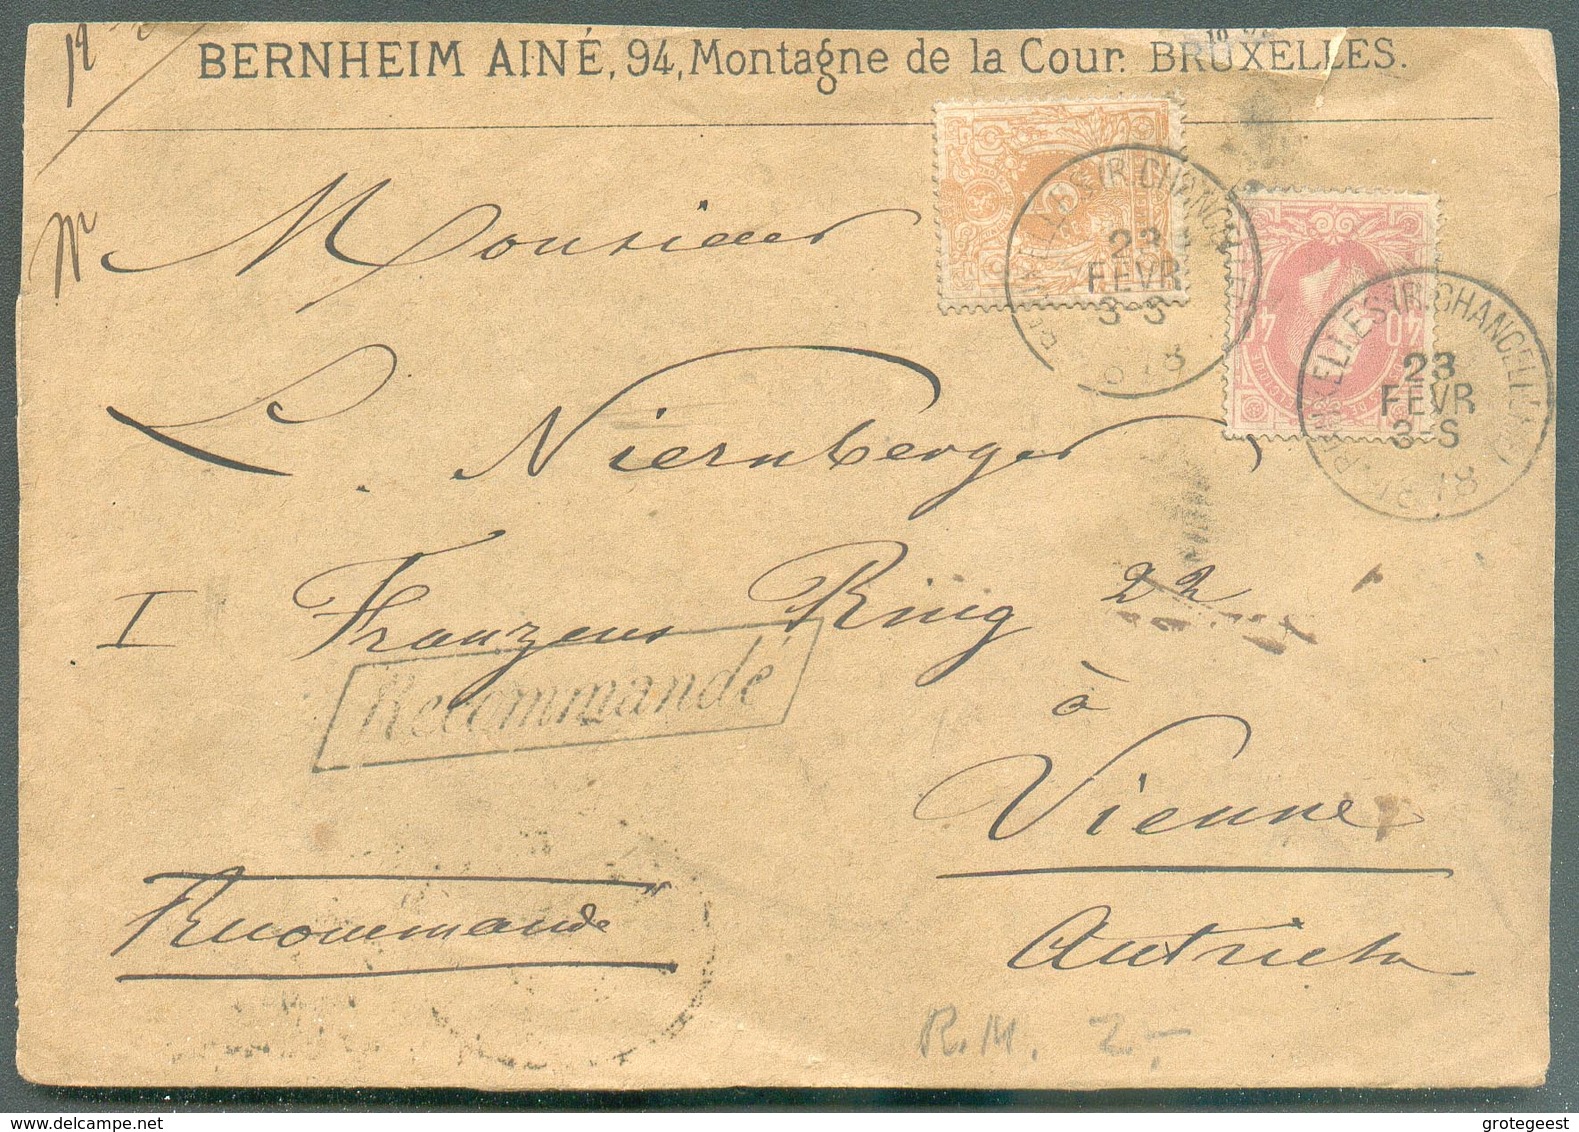 BERNHEIM AINÉ, 94, Montagne de la Cour. BRUXELLES.
No
Monsieur
L. Niernberger
I Franzens Ring 22
Recommandé
à
Vienne
Autriche
Recommandé
R.M. 2.-
BRUXELLES (R. CHANCELLERIE)
23
FEVR
3-S
1878
40 40
BRUXELLES (R. CHANCELLERIE)
23
FEVR
3-S
1878
grotegeest